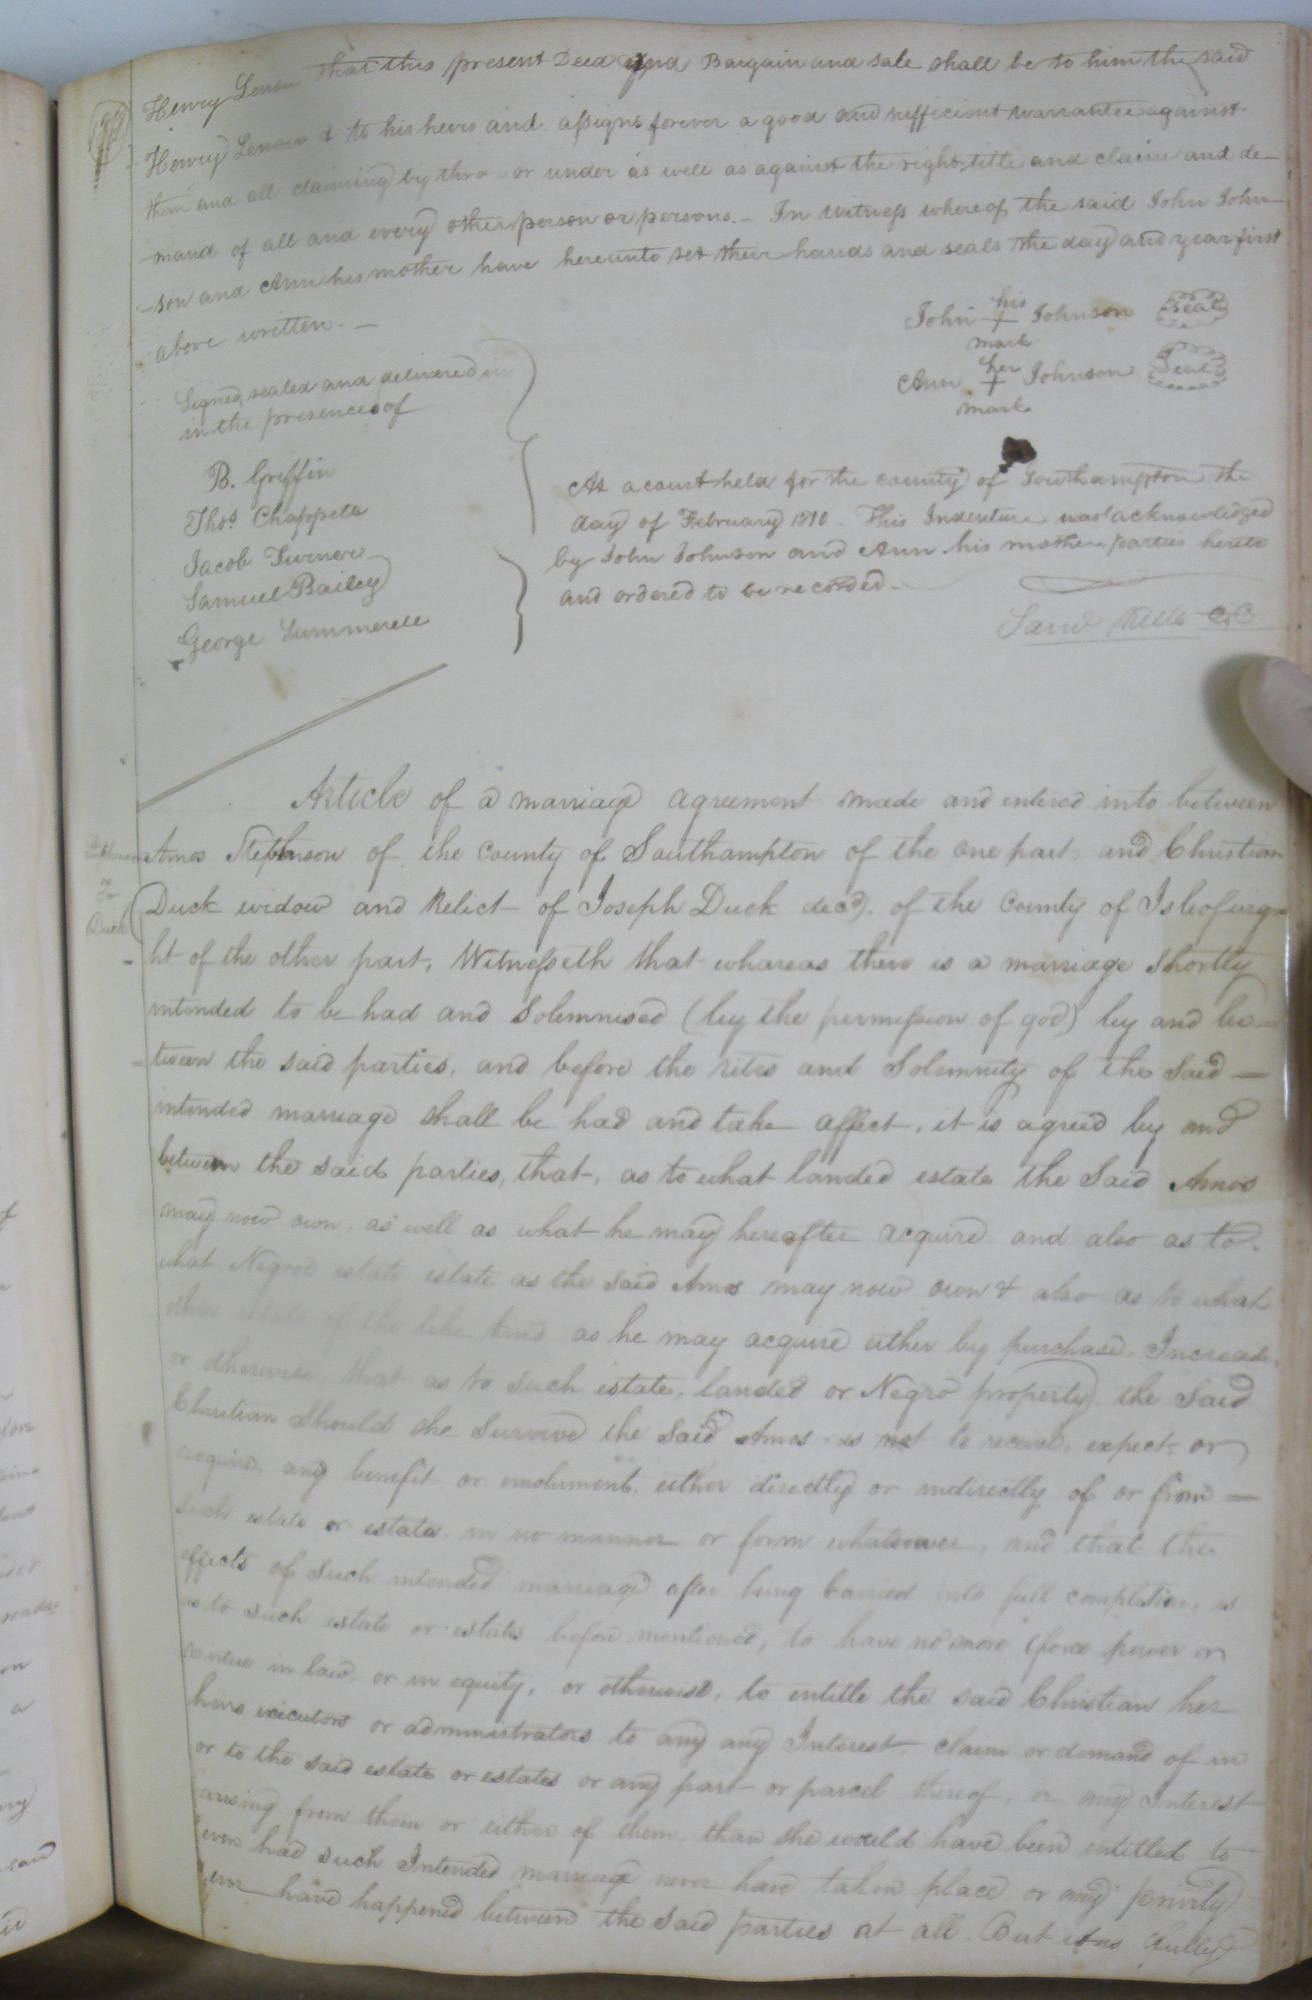 Henry Lenow that this present Deed and Bargain and sale shall be to him the said
Henry Lenow & to his heirs and assigns forever a good and sufficient warrantee against
them and all claiming by thro or under as well as against the right, title and claim and de-
mand of all and every other person or persons. - In witness whereof the said John John-
-son and Ann his mother have hereunto set their hands and seals the day and year first
above written. -
John his + mark Johnson Seal
Ann her + mark Johnson Seal
Signed, sealed and delivered in
in the presence of
B. Griffin
Thos. Chappell
Jacob Turner
Samuel Bailey
George Summerell
At a court held for the county of Southampton the
day of February 1810. This Indenture was acknowledged
by John Johnson and Ann his mother parties hereto
and ordered to be recorded.
Saml Kello CC
Stephenson
To
Duck
Article of a marriage agreement made and entered into between
Amos Stephenson of the County of Southampton of the one part, and Christian
Duck widow and Relict of Joseph Duck decd. of the County of Isleofwig-
ht of the other part, Witnesseth that whareas there is a marriage shortly
intended to be had and Solemnised (by the permession of god) by and be-
tween the said parties, and before the rites and Solemnity of the Said -
intended marriage shall be had and take affect, it is agreed by and
between the said parties, that, as to what landed estate the Said Amos
may now own, as well as what he may hereafter acquire and also as to
what Negroe estate estate as the said Amos may now own & also as to what
other estate of the like kind as he may acquire either by purchase, Increase,
or otherwise, that as to such estate, landed or Negro property, the Said
Christian Should she Survive the Said Amos is not to receive, expect, or
require, any benefit or emolument, either directly or indirectly of or from -
such estate or estates in no manner or form whatsoever, and that the
effects of Such intended marriage after being Carried into full completion, is
as to such estate or estates before mentioned, to have no more force power or
virtue in law, or in equity, or otherwise, to entitle the said Christian her
heirs executors or administrators to any any Interest, claim or demand of in
or to the said estate or estates or any part or parcel thereof, or any Interest
arising from them or either of them, than she would have been entitled to
even had such Intended marriage never have taken place, or any privity
ever have happened between the said parties at all. But it is fully